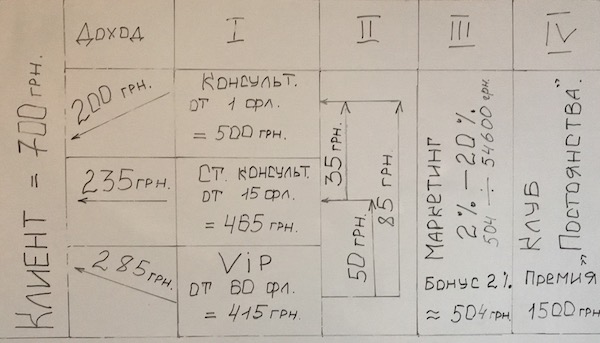 КЛИЕНТ = 700 ГРН.
ДОХОД
I
II
III
IV
200 ГРН.
КОНСУЛЬТ.
ОТ 1 ФЛ.
= 500 ГРН.
235 ГРН.
СТ. КОНСУЛЬТ.
ОТ 15 ФЛ.
= 465 ГРН.
285 ГРН.
ViP
ОТ 60 ФЛ.
= 415 ГРН.
35 ГРН.
85 ГРН.
50 ГРН.
МАРКЕТИНГ
2% – 20%
504 ÷ 54600 грн.
БОНУС 2%
≈ 504 ГРН
КЛУБ
„ПОСТОЯНСТВА."
ПРЕМИЯ
1500 ГРН